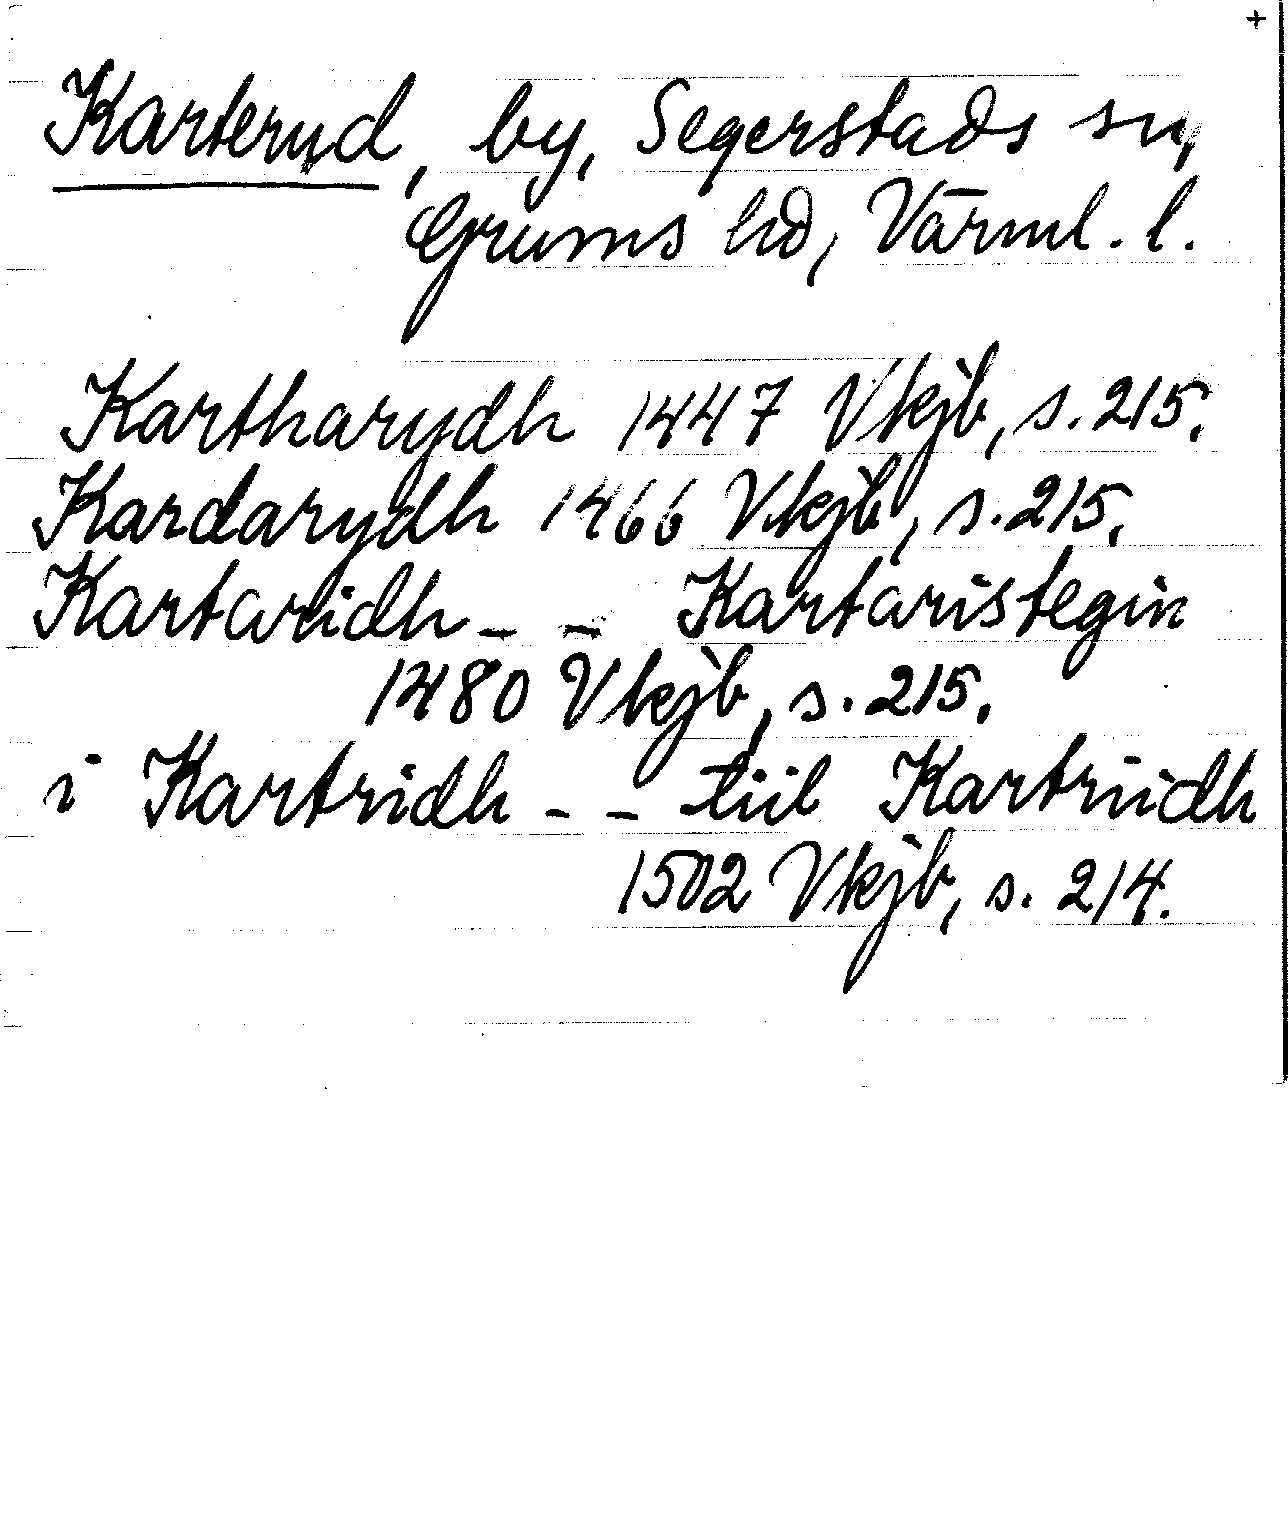 +
Karteryd, by, Segerstads sn,
Grums hd, Värml. l.
Kartharydh 1447 Vkjb, s. 215.
Kardarydh 1466 Vkjb, s. 215.
Kartaridh - - Kartaristegin
1480 Vkjb, s. 215.
i Kartridh - - tiil Kartriidh
1502 Vkjb, s. 214.